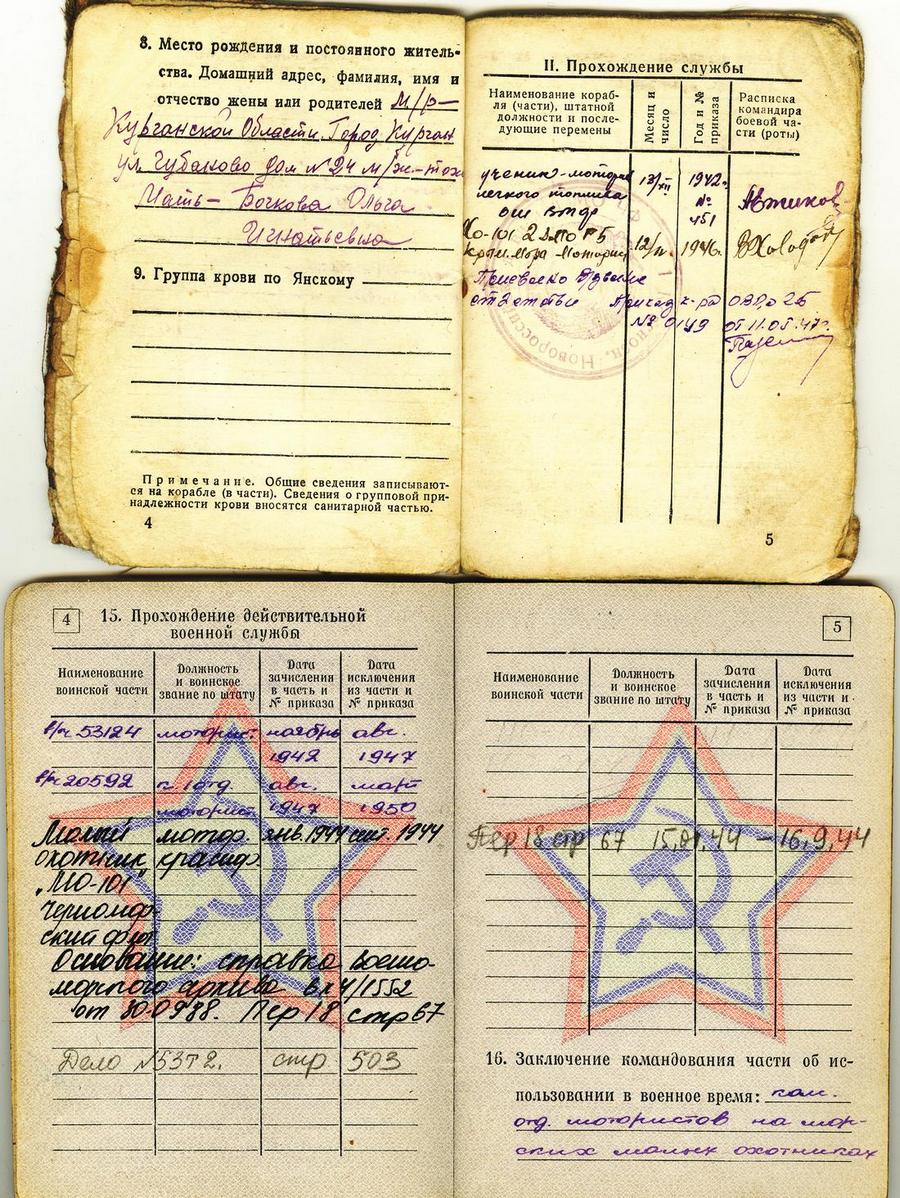 8. Место рождения и постоянного житель-
ства. Домашний адрес, фамилия, имя и
отчество жены или родителей М/р—
Курганской Области. Город Курган
ул. Губаново дом №24 м/ж-тож
Мать – Бочкова Ольга
Игнатьевна
9. Группа крови по Янскому
Примечание. Общие сведения записывают-
ся на корабле (в части). Сведения о групповой при-
надлежности крови вносятся санитарной частью.
4
II. Прохождение службы
Наименование кораб-
ля (части), штатной
должности и после-
дующие перемены
Месяц и
число
Год и №
приказа
Расписка
командира
боевой ча-
сти (роты)
ученик-моторист 13/XII 1942г.
легкого топлива №
451
1946г.
Приказ к-ра
№ 0149 от 11.05.47г.
5
4
15. Прохождение действительной
военной службы
Наименование
воинской части
Должность
и воинское
звание по штату
Дата
зачисления
в часть и
№ приказа
Дата
исключения
из части и
№ приказа
в/ч 53124 моторист ноябрь авг.
1942 1947
в/ч 20592 к-р отд. авг. март
мотористов 1947 1950
Малый мотор. янв. 1944 сент. 1944
охотник краснф.
„МО-101"
Черномор-
ский флот
Основание: справка Военно-
морского архива вх 4/1552
от 30.09.88. Пер 18 стр 67
Дело №53т2. стр 503
5
Наименование
воинской части
Должность
и воинское
звание по штату
Дата
зачисления
в часть и
№ приказа
Дата
исключения
из части и
№ приказа
Пер 18 стр 67 15.01.44 – 16.9.44
16. Заключение командования части об ис-
пользовании в военное время: ком.
отд. мотористов на мор-
ских малых охотниках